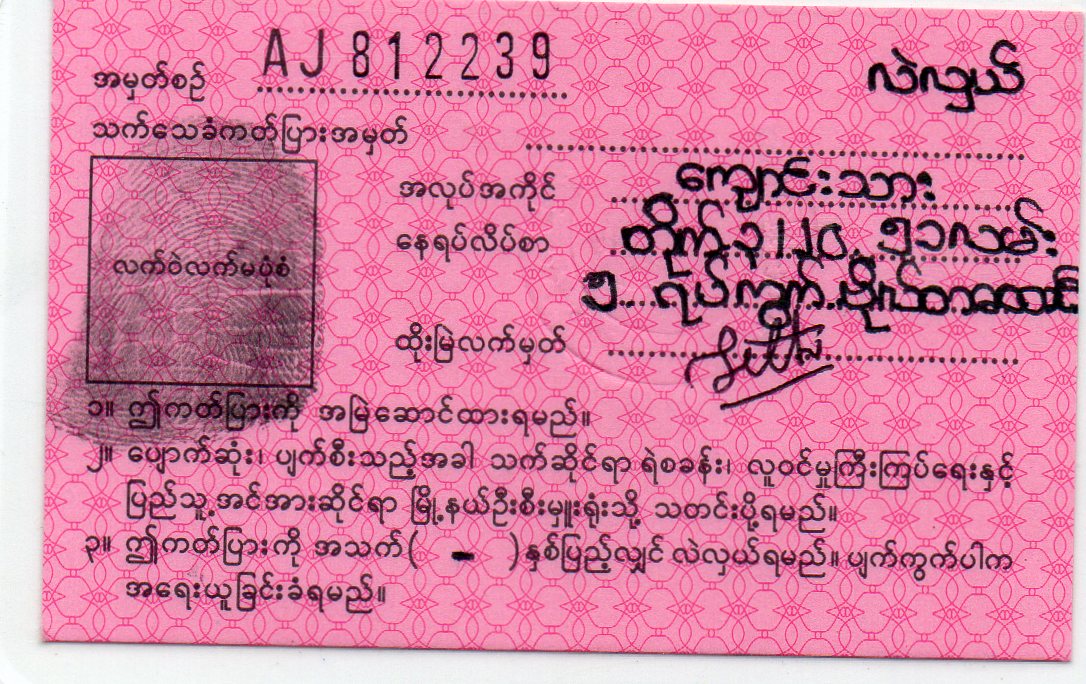 အမှတ်စဉ် AJ 812239 လဲလှယ်
သက်သေခံကတ်ပြားအမှတ်
အလုပ်အကိုင် ကျောင်းသား
နေရပ်လိပ်စာ တိုက်, ၃၂၂၀, ၅၁လမ်း
၅ ရပ်ကွက် ဗိုလ်တထောင်
ထိုးမြဲလက်မှတ်
လက်ဝဲလက်မပုံစံ
၁။ ဤကတ်ပြားကို အမြဲဆောင်ထားရမည်။
၂။ ပျောက်ဆုံး၊ ပျက်စီးသည့်အခါ သက်ဆိုင်ရာ ရဲစခန်း၊ လူဝင်မှုကြီးကြပ်ရေးနှင့်
ပြည်သူ့အင်အားဆိုင်ရာ မြို့နယ်ဦးစီးမှူးရုံးသို့ သတင်းပို့ရမည်။
၃။ ဤကတ်ပြားကို အသက်( - )နှစ်ပြည့်လျှင် လဲလှယ်ရမည်။ ပျက်ကွက်ပါက
အရေးယူခြင်းခံရမည်။